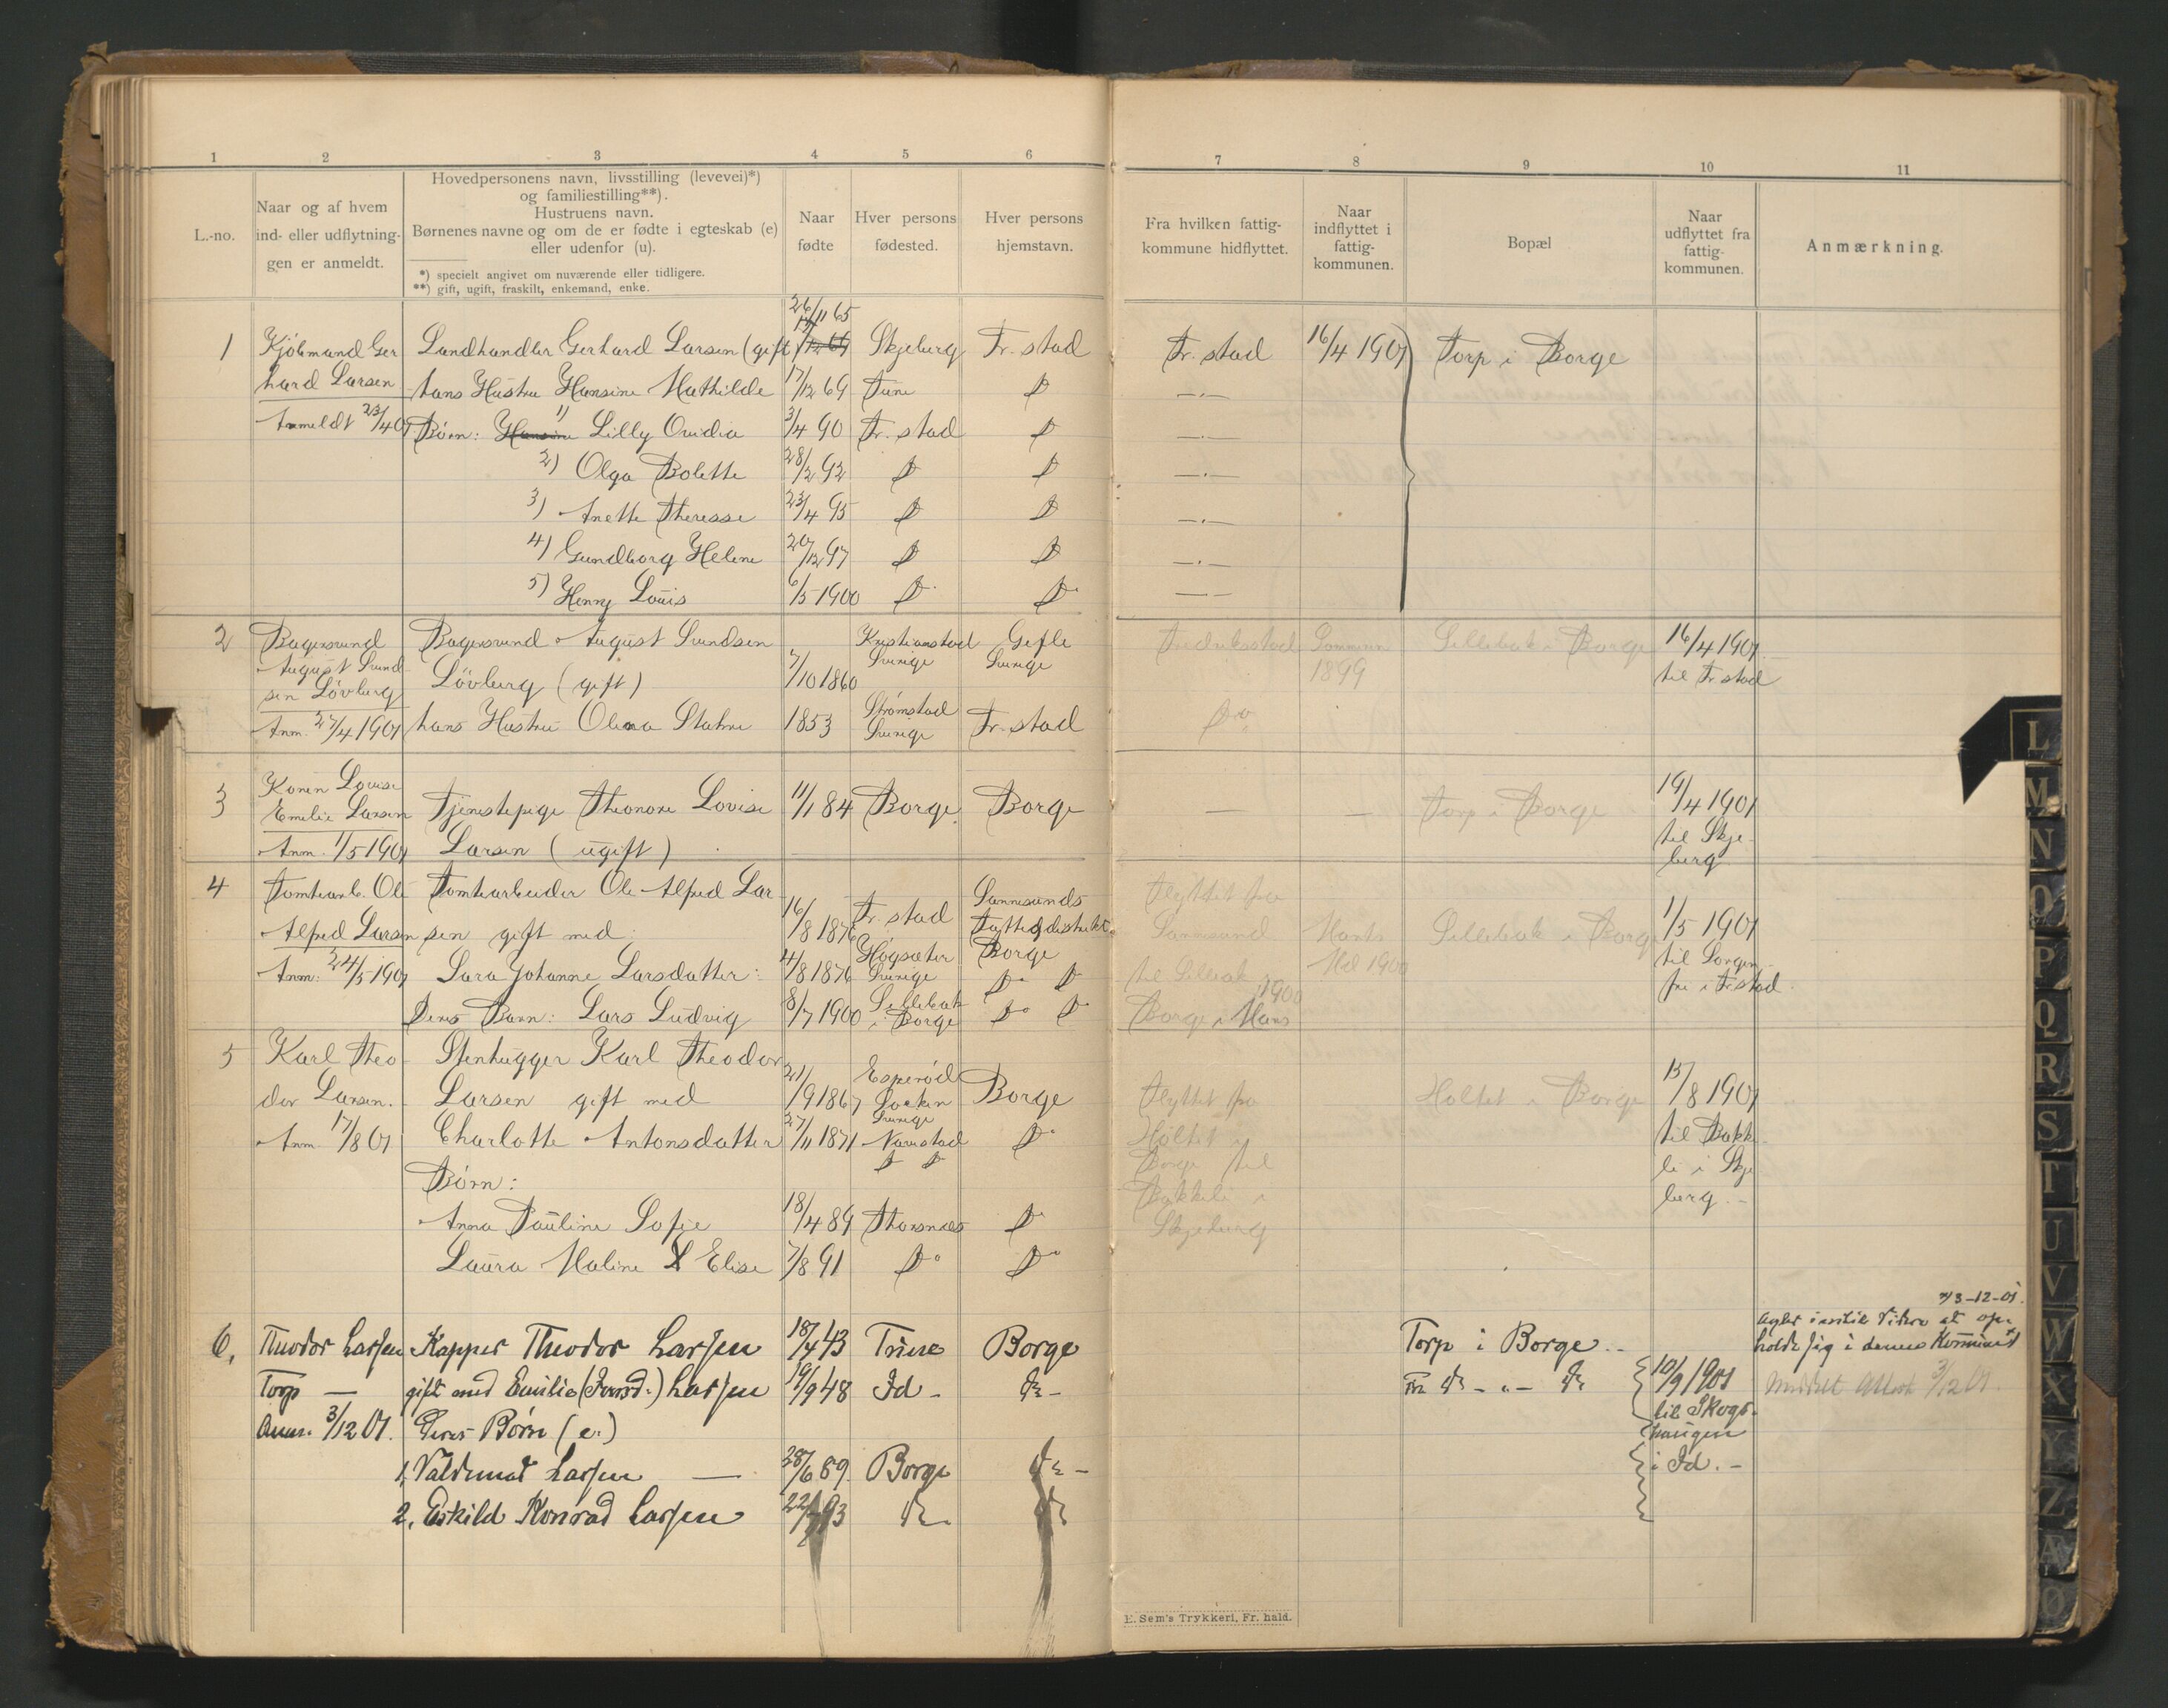 1 2 3 4 5 6 7 8 9 10 11
L.-no.
Naar og af hvem
ind- eller udflytnin-
gen er anmeldt.
Hovedpersonens navn, livsstilling (levevei)*)
og familiestilling**).
Hustruens navn.
Børnenes navne og om de er fødte i egteskab (e)
eller udenfor (u).
*) specielt angivet om nuværende eller tidligere.
**) gift, ugift, fraskilt, enkemand, enke.
Naar
fødte
Hver persons
fødested.
Hver persons
hjemstavn.
Fra hvilken fattig-
kommune hidflyttet.
Naar
indflyttet i
fattig-
kommunen.
Bopæl
Naar
udflyttet fra
fattig-
kommunen.
Anmærkning.
26/11 65
1 Kjöbmand Ger Landhandler Gerhard Larsen (gift) Skjeberg Fr. stad Fr. stad 16/4 1901 Torp i Borge
hard Larsen hans Hustru Hansine Mathilde 17/12 69 Tune D —.—
Anmeldt 23/4 01 Børn: Hansine 1) Lilly Ovidia 3/4 90 Fr. stad D —.—
2) Olga Bolette 28/2 92 D D —.—
3) Anette Theresse 23/4 95 D D —.—
4) Gundborg Helene 20/12 97 D D —.—
5) Henry Louis 6/5 1900 D D —.—
2 Bagersvend Bagersvend August Svendsen Kristianstad Gefle Fredriksstad Sommeren Sellebak i Borge 16/4 1901
August Svend- Lövberg (gift) 7/10 1860 Sverige Sverige 1899 til Fr stad
sen Lövberg
Anm. 27/4 1901 hans Hustru Olena Stahre 1853 Strømstad Sverige Fr. stad Do
3 Konen Lovise
Emelie Larsen Tjenestepige Theonore Lovise 11/1 84 Borge Borge — — Torp i Borge 19/4 1901
Anm. 1/5 1901 Larsen (ugift) til Skje-
berg
4 Tomtearb. Ole Tomtearbeider Ole Alfred Lar 16/8 1876 Fr. stad Sannesunds Flyttet fra
Alfred Larsen sen gift med: Borge Sannesund Marts Sellebak i Borge 1/5 1901
Anm: 24/5 1901 Sara Johanne Larsdatter: 4/8 1876 Högsæter Sverige Do D til Sellebak i 1900 til Sorgen-
fri i Fr.stad.
Deres Barn: Lars Ludvig 8/7 1900 Sellebak i Borge Do D Borge i Mars 1900
5 Karl Theo- Stenhugger Karl Theodor
dor Larsen. Larsen gift med 21/9 1867 Socken Sverige Borge Flyttet fra Holtet i Borge 15/8 1901
Anm. 17/8 01 Charlotte Antonsdatter 27/11 1871 Navestad Do Holtet i til Bakke-
Børn: D D Borge til li i Skje
Anna Pauline Sofie 18/4 89 Thorsnæs D Bakkeli i berg. —
Laura Maline Elise 7/8 91 Do Do Skjeberg
6. Theodor Larsen Kapper Theodor Larsen 18/4 43 Tune Borge Torp i Borge.
Torp — gift med Emilie Larsen 19/9 48 Id - do - 10/9 1901
Anm. 3/12 01. Deres Børn (e.) til Skogs-
haugen
1. Valdemar Larsen — 28/6 89 Borge do - i Id. —
2. Eskild Konrad Larsen do do
3-12-01.
holde sig i denne Kommune
Meddelt Attest 3/12 01.
E. Sem's Trykkeri, Fr. hald.
L
M
N
O
P
Q
R
S
T
U
V
W
X
Y
Z
Æ
Ø